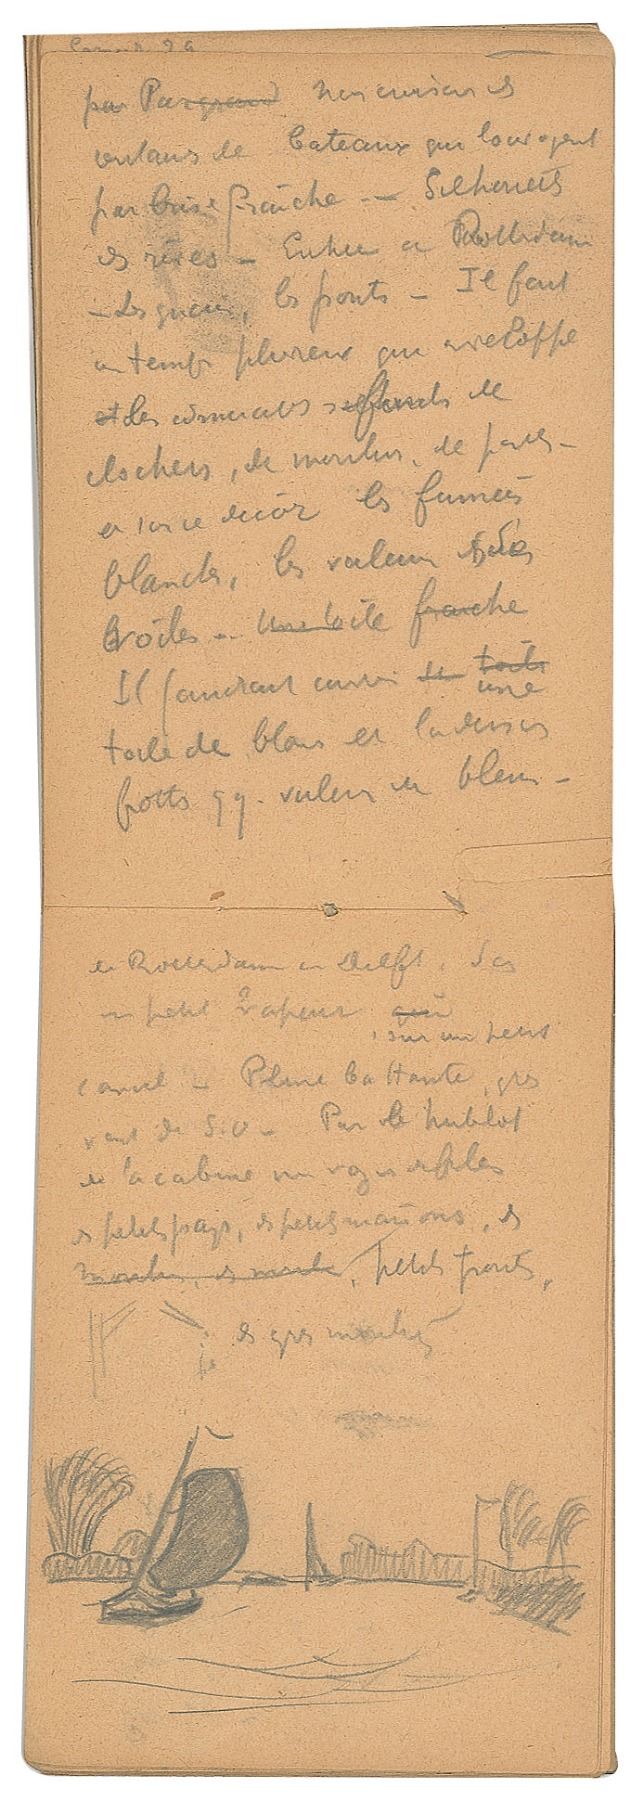 Samedi 29
par nous croisons des
de bateaux qui louvoyent
par brise fraîche -- Silhouettes
des rives - Entrée à Rotterdam
- Les quais, les ponts - Il faut
un temps pluvieux qui enveloppe
et des de
clochers, de moulins, de
et dans ce décor les fumées
blanches, les valeurs des
voiles -- Une toile fraiche
Il faudrait couvrir la toile
une
toile de blanc et la dessus
frotts qq. valeurs de bleus -
de Rotterdam à Delft. Ds
un petit vapeur qui
, sur un petit
canal - Pluie battante, gros
vent de S.O - Par le hublot
de la cabine on voyait défiler
des petits pays, des petites maisons, des
moulins, des petits ponts,
je des gros moulins